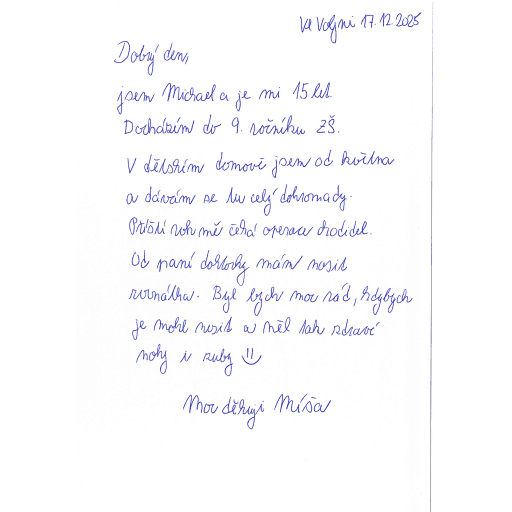 Ve Volyni 17.12.2025
Dobrý den,
jsem Michael a je mi 15 let.
Docházím do 9. ročníku ZŠ.
V dětském domově jsem od května
a dávám se tu celý dohromady.
Příští rok mě čeká operace chodidel.
Od paní doktorky mám nosit
rovnátka. Byl bych moc rád, kdybych
je mohl nosit a měl tak zdravé
nohy i zuby
Moc děkuji Míša